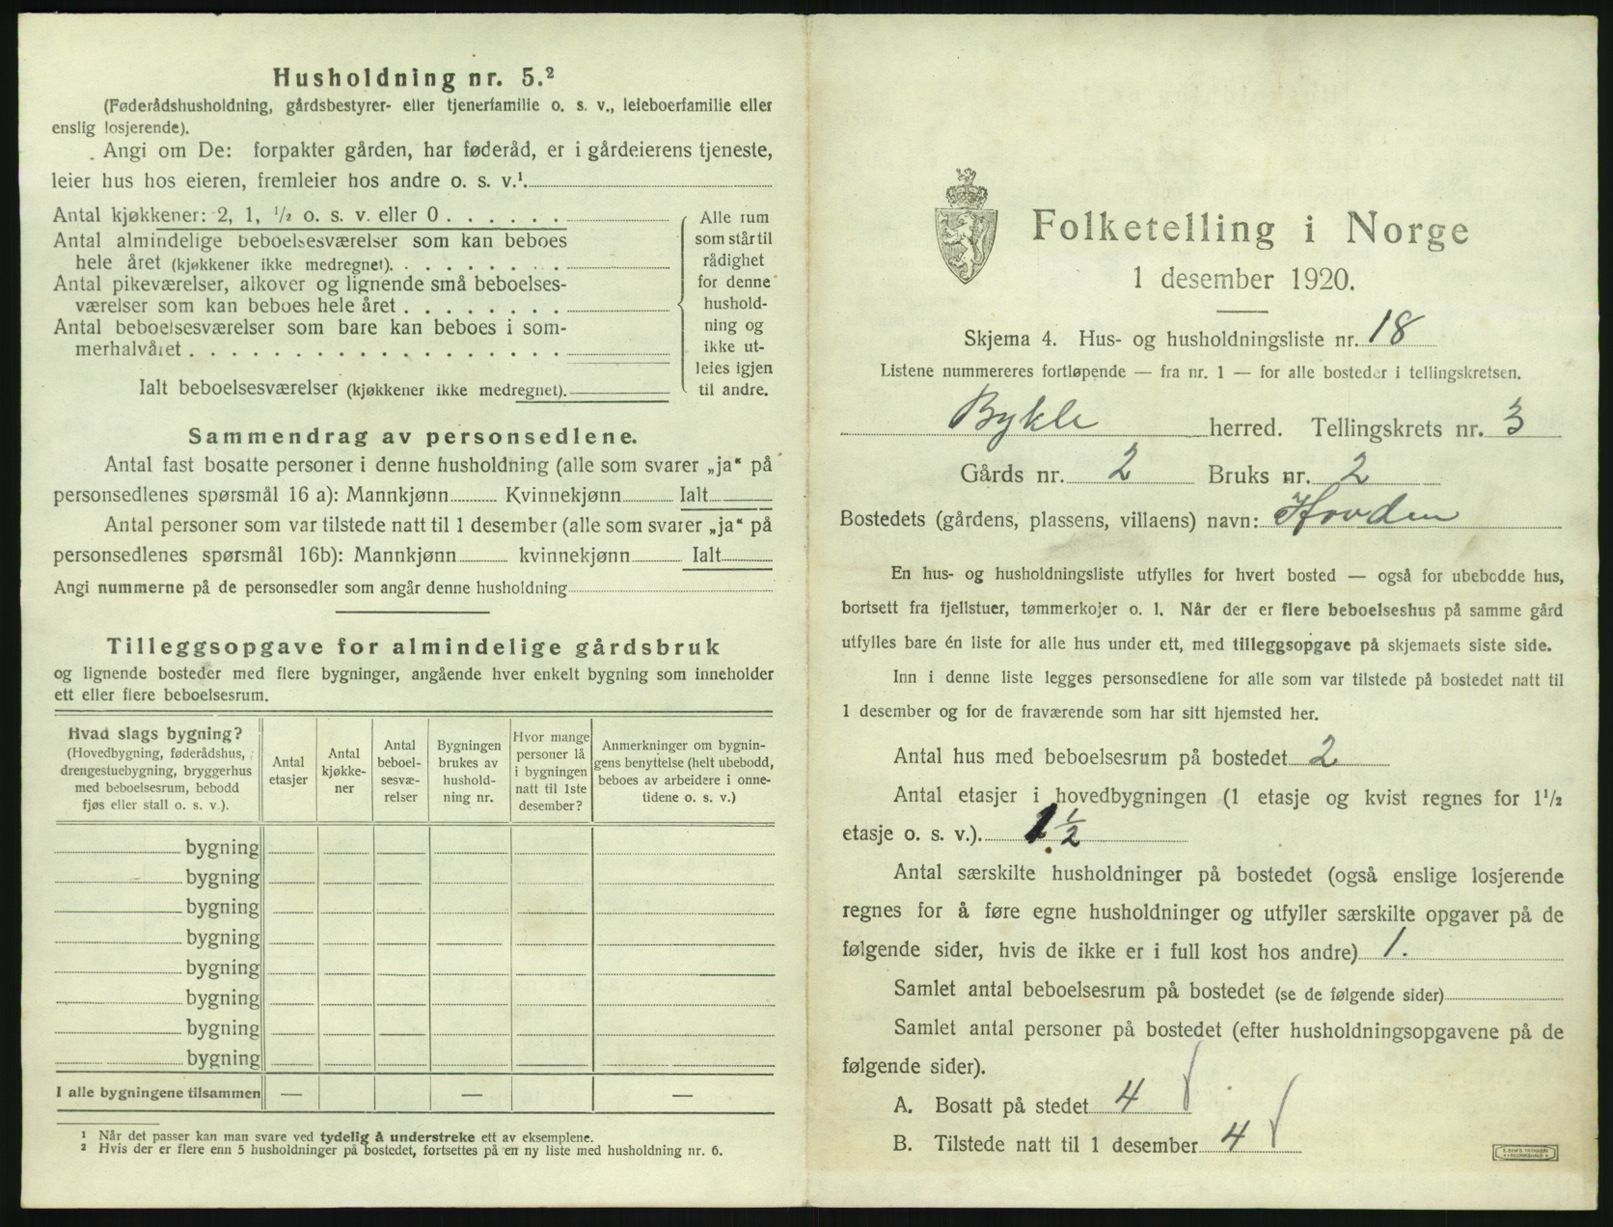 Husholdning nr. 5.²
(Føderådshusholdning, gårdsbestyrer- eller tjenerfamilie o. s. v., leieboerfamilie eller
enslig losjerende).
Angi om De: forpakter gården, har føderåd, er i gårdeierens tjeneste,
leier hus hos eieren, fremleier hos andre o. s. v.¹.
Antal kjøkkener: 2, 1, ½ o. s. v. eller 0
Antal almindelige beboelsesværelser som kan beboes
hele året (kjøkkener ikke medregnet).
Antal pikeværelser, alkover og lignende små beboelses-
værelser som kan beboes hele året
Antal beboelsesværelser som bare kan beboes i som-
merhalvåret
Ialt beboelsesværelser (kjøkkener ikke medregnet).
Alle rum
som står til
rådighet
for denne
hushold-
ning og
ikke ut-
leies igjen
til andre.
Sammendrag av personsedlene.
Antal fast bosatte personer i denne husholdning (alle som svarer „ja“ på
personsedlenes spørsmål 16 a): Mannkjønn Kvinnekjønn Ialt
Antal personer som var tilstede natt til 1 desember (alle som svarer „ja“ på
personsedlenes spørsmål 16b): Mannkjønn kvinnekjønn Ialt
Angi nummerne på de personsedler som angår denne husholdning
Tilleggsopgave for almindelige gårdsbruk
og lignende bosteder med flere bygninger, angående hver enkelt bygning som inneholder
ett eller flere beboelsesrum.
Hvad slags bygning?
(Hovedbygning, føderådshus,
drengestuebygning, bryggerhus
med beboelsesrum, bebodd
fjøs eller stall o. s. v.).
Antal
etasjer
Antal
kjøkke-
ner
Antal
beboel-
sesvæ-
relser
Bygningen
brukes av
hushold-
ning nr.
Hvor mange
personer lå
i bygningen
natt til 1ste
desember?
Anmerkninger om bygnin-
gens benyttelse (helt ubebodd,
beboes av arbeidere i onne-
tidene o. s. v.)
bygning
bygning
bygning
bygning
bygning
bygning
bygning
bygning
I alle bygningene tilsammen — — —
¹ Når det passer kan man svare ved tydelig å understreke ett av eksemplene.
² Hvis der er flere enn 5 husholdninger på bostedet, fortsettes på en ny liste med husholdning nr. 6.
Folketelling i Norge
1 desember 1920.
Skjema 4. Hus- og husholdningsliste nr. 18
Listene nummereres fortløpende — fra nr. 1 — for alle bosteder i tellingskretsen.
Bykle herred. Tellingskrets nr. 3
Gårds nr. 2 Bruks nr. 2
Bostedets (gårdens, plassens, villaens) navn: Hovden
En hus- og husholdningsliste utfylles for hvert bosted — også for ubebodde hus,
bortsett fra fjellstuer, tømmerkojer o. l. Når der er flere beboelseshus på samme gård
utfylles bare én liste for alle hus under ett, med tilleggsopgave på skjemaets siste side.
Inn i denne liste legges personsedlene for alle som var tilstede på bostedet natt til
1 desember og for de fraværende som har sitt hjemsted her.
Antal hus med beboelsesrum på bostedet 2
Antal etasjer i hovedbygningen (1 etasje og kvist regnes for 1½
etasje o. s. v.). 1½
Antal særskilte husholdninger på bostedet (også enslige losjerende
regnes for å føre egne husholdninger og utfyller særskilte opgaver på de
følgende sider, hvis de ikke er i full kost hos andre) 1.
Samlet antal beboelsesrum på bostedet (se de følgende sider)
Samlet antal personer på bostedet (efter husholdningsopgavene på de
følgende sider).
A. Bosatt på stedet 4
B. Tilstede natt til 1 desember 4